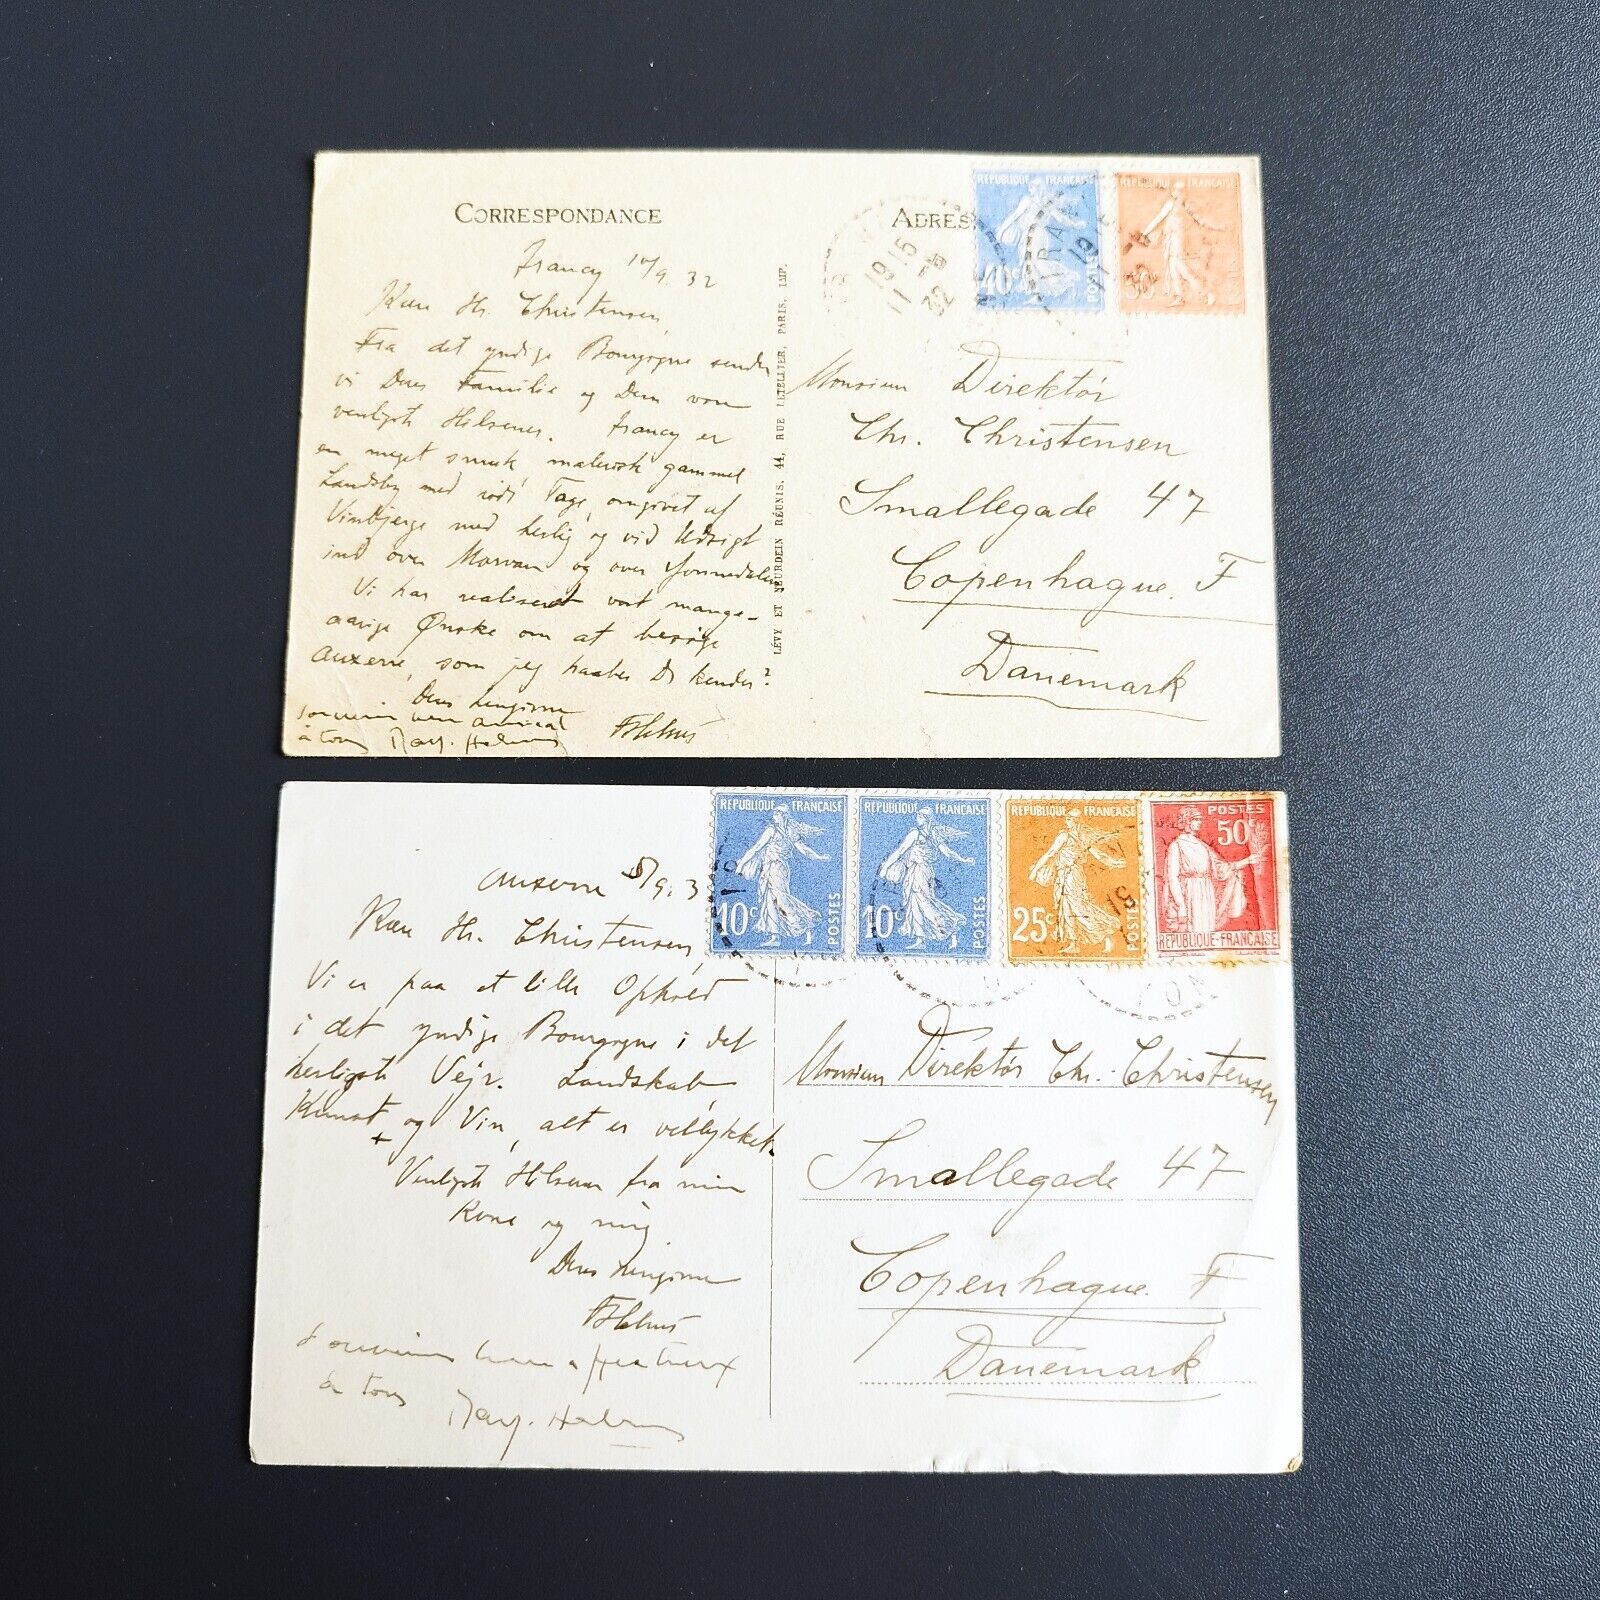 CORRESPONDANCE
ADRES
RÉPUBLIQUE FRANÇAISE
40c POSTES
RÉPUBLIQUE FRANÇAISE
50c
19 15
11 - 9
32
Irancy 10/9 32
Kære Hr. Christensen,
Fra det yndige Bourgogne sender
vi Deres Familie og Dem vore
venligste Hilsener. Irancy er
en meget smuk, malerisk gammel
Landsby med røde Tage, omgivet af
Vinbjerge med herlig og vid Udsigt
ind over Morvan og over Yonnedalen
Vi har realiseret vort mange-
aarige Ønske om at besøge
Auxerre, som jeg haaber De kender?
Deres hengivne
souvenir bien amical
à tous
LÉVY ET NEURDEIN RÉUNIS, 44, RUE LETELLIER, PARIS, IMP.
Monsieur Direktør
Chr. Christensen
Smallegade 47
Copenhague. F
Danemark
RÉPUBLIQUE FRANÇAISE
10c POSTES
RÉPUBLIQUE FRANÇAISE
10c POSTES
RÉPUBLIQUE FRANÇAISE
25c POSTES
POSTES
50c
RÉPUBLIQUE-FRANÇAISE
Auxerre 5/9. 3
Kære Hr. Christensen,
Vi er paa et lille Ophold
i det yndige Bourgogne i det
herligste Vejr. Landskab,
Kunst og Vin, alt er vellykket.
Venligste Hilsener fra min
Kone og mig
Deres hengivne
Souvenirs bien affectueux
à tous
Monsieur Direktør Chr. Christensen
Smallegade 47
Copenhague. F
Danemark